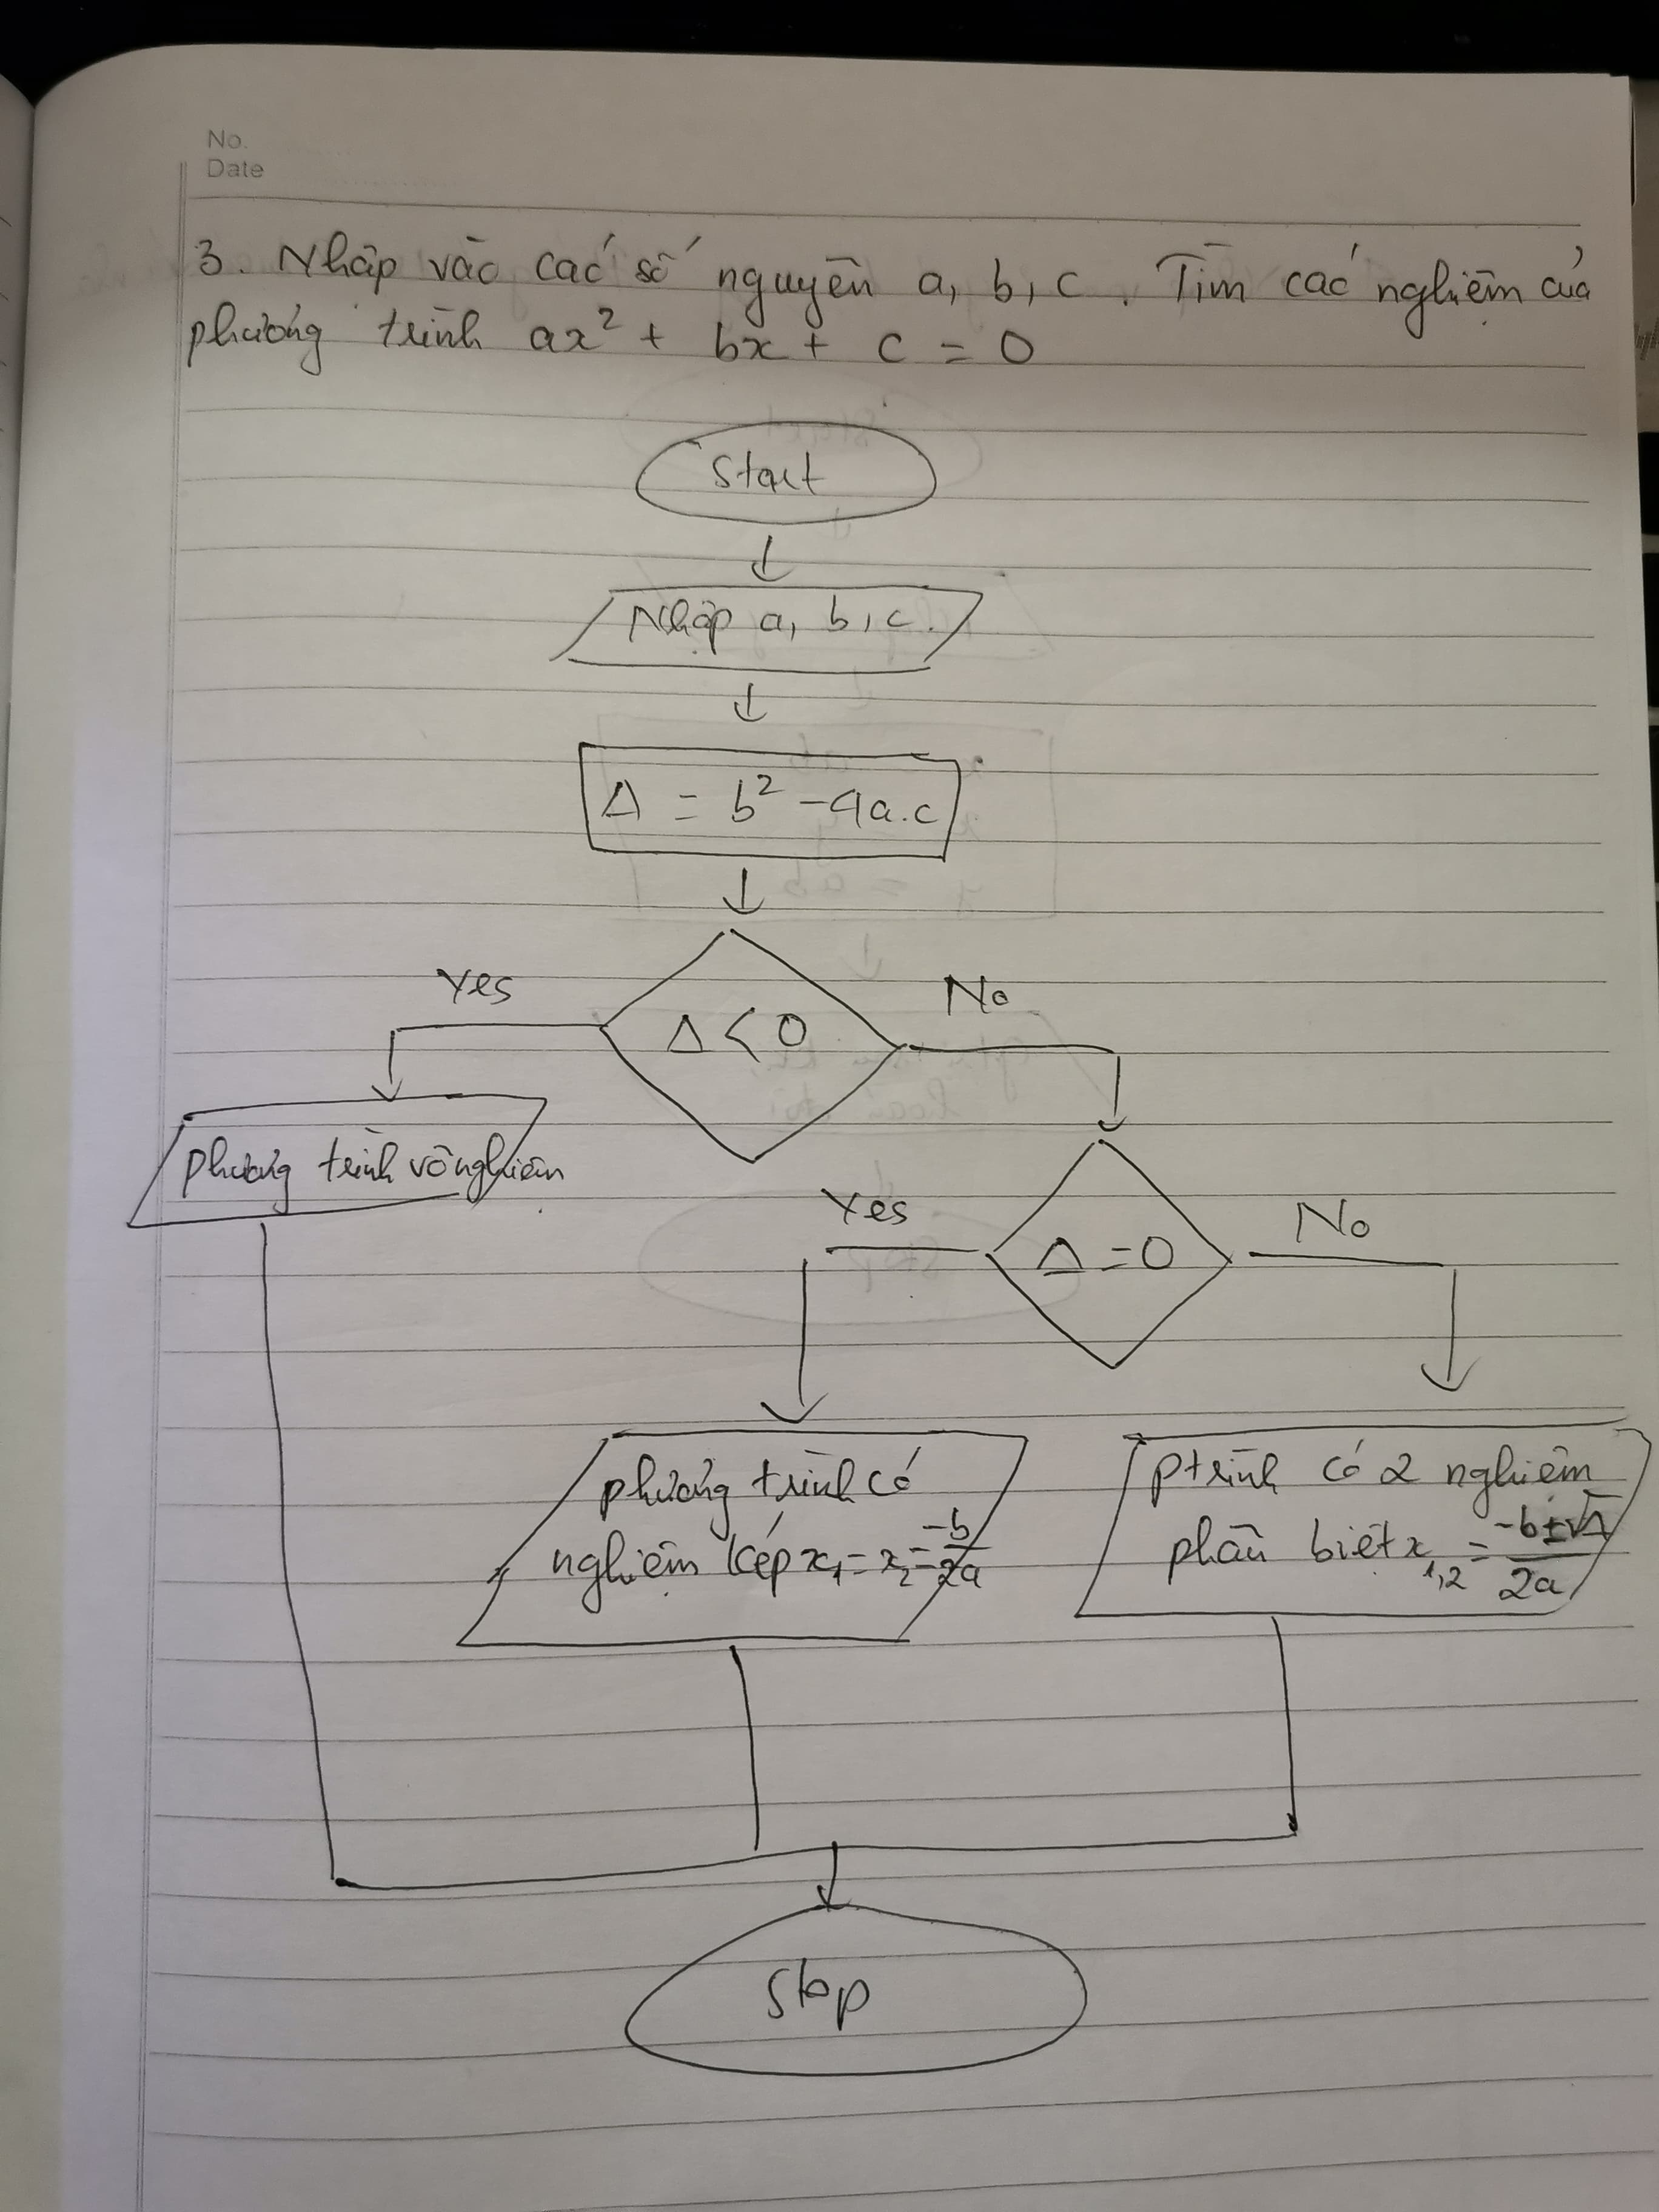 No.
Date
3. Nhập vào các số nguyên a, b, c. Tìm các nghiệm của
phương trình ax² + bx + c = 0
Start
Nhập a, b, c.
Δ = b² - 4a.c
Yes
Δ < 0
No
phương trình vô nghiệm
Yes
Δ = 0
No
phương trình có
nghiệm kép x₁ = x₂ = -b/2a
ptrình có 2 nghiệm
phân biệt x₁,₂ = -b±√Δ/2a
Stop